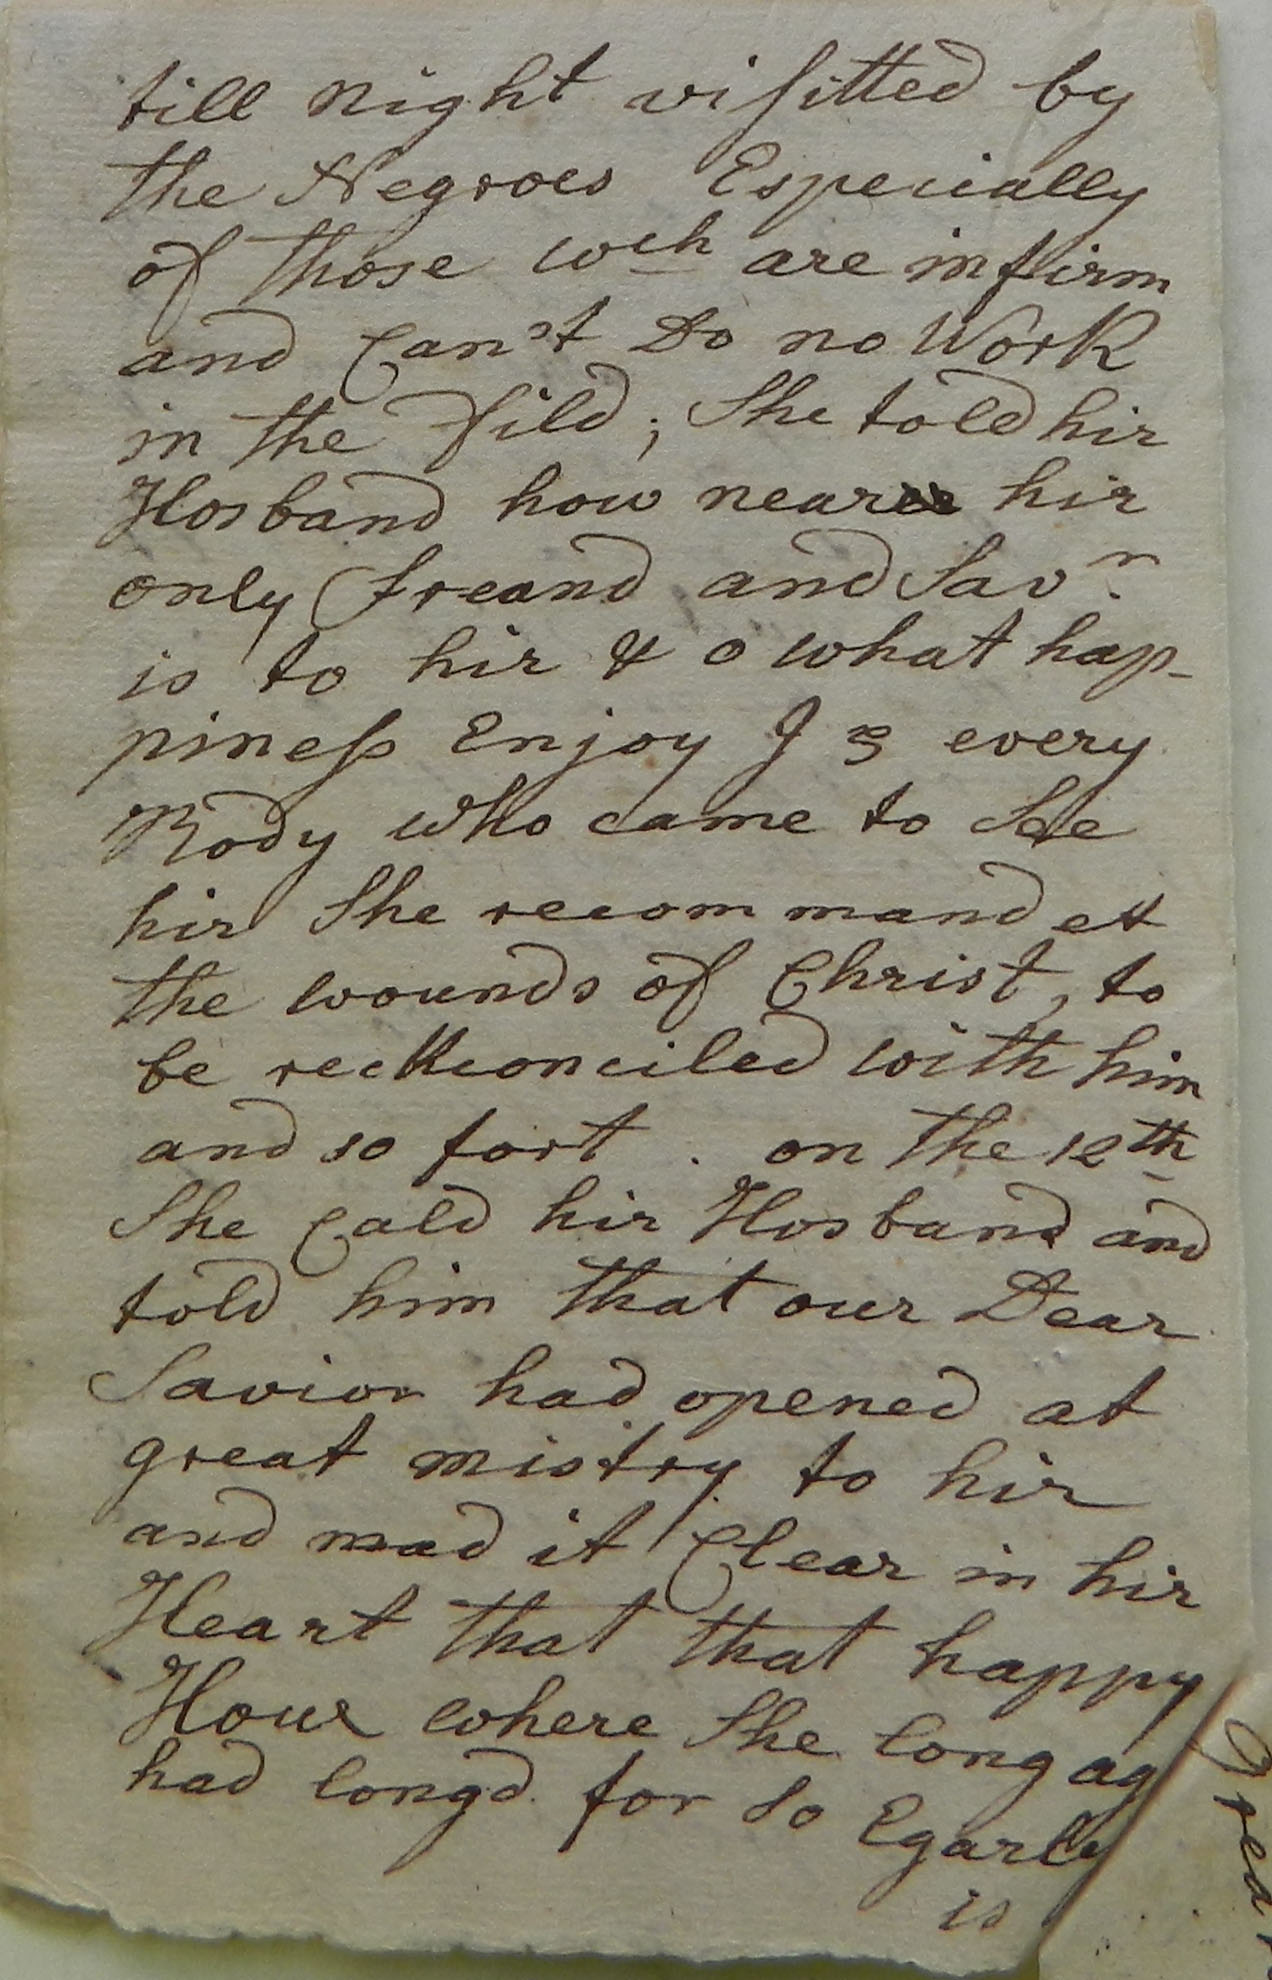 till night visitted by
the Negroes Especially
of those wch are infirm
and Can't Do no Work
in the fild; She told hir
Hosband how near hir
only freand and Savr.
is to hir & o what hap-
piness Enjoy I every
Body who came to See
hir She recommandet
the wounds of Christ, to
be reckconciled with him
and so fort. on the 12th
She Cald hir Hosband and
told him that our Dear
Savior had opened at
great mistry to hir
and mad it Clear in hir
Heart that that happy
Hour where She long ag
had longd for So Egarly
is